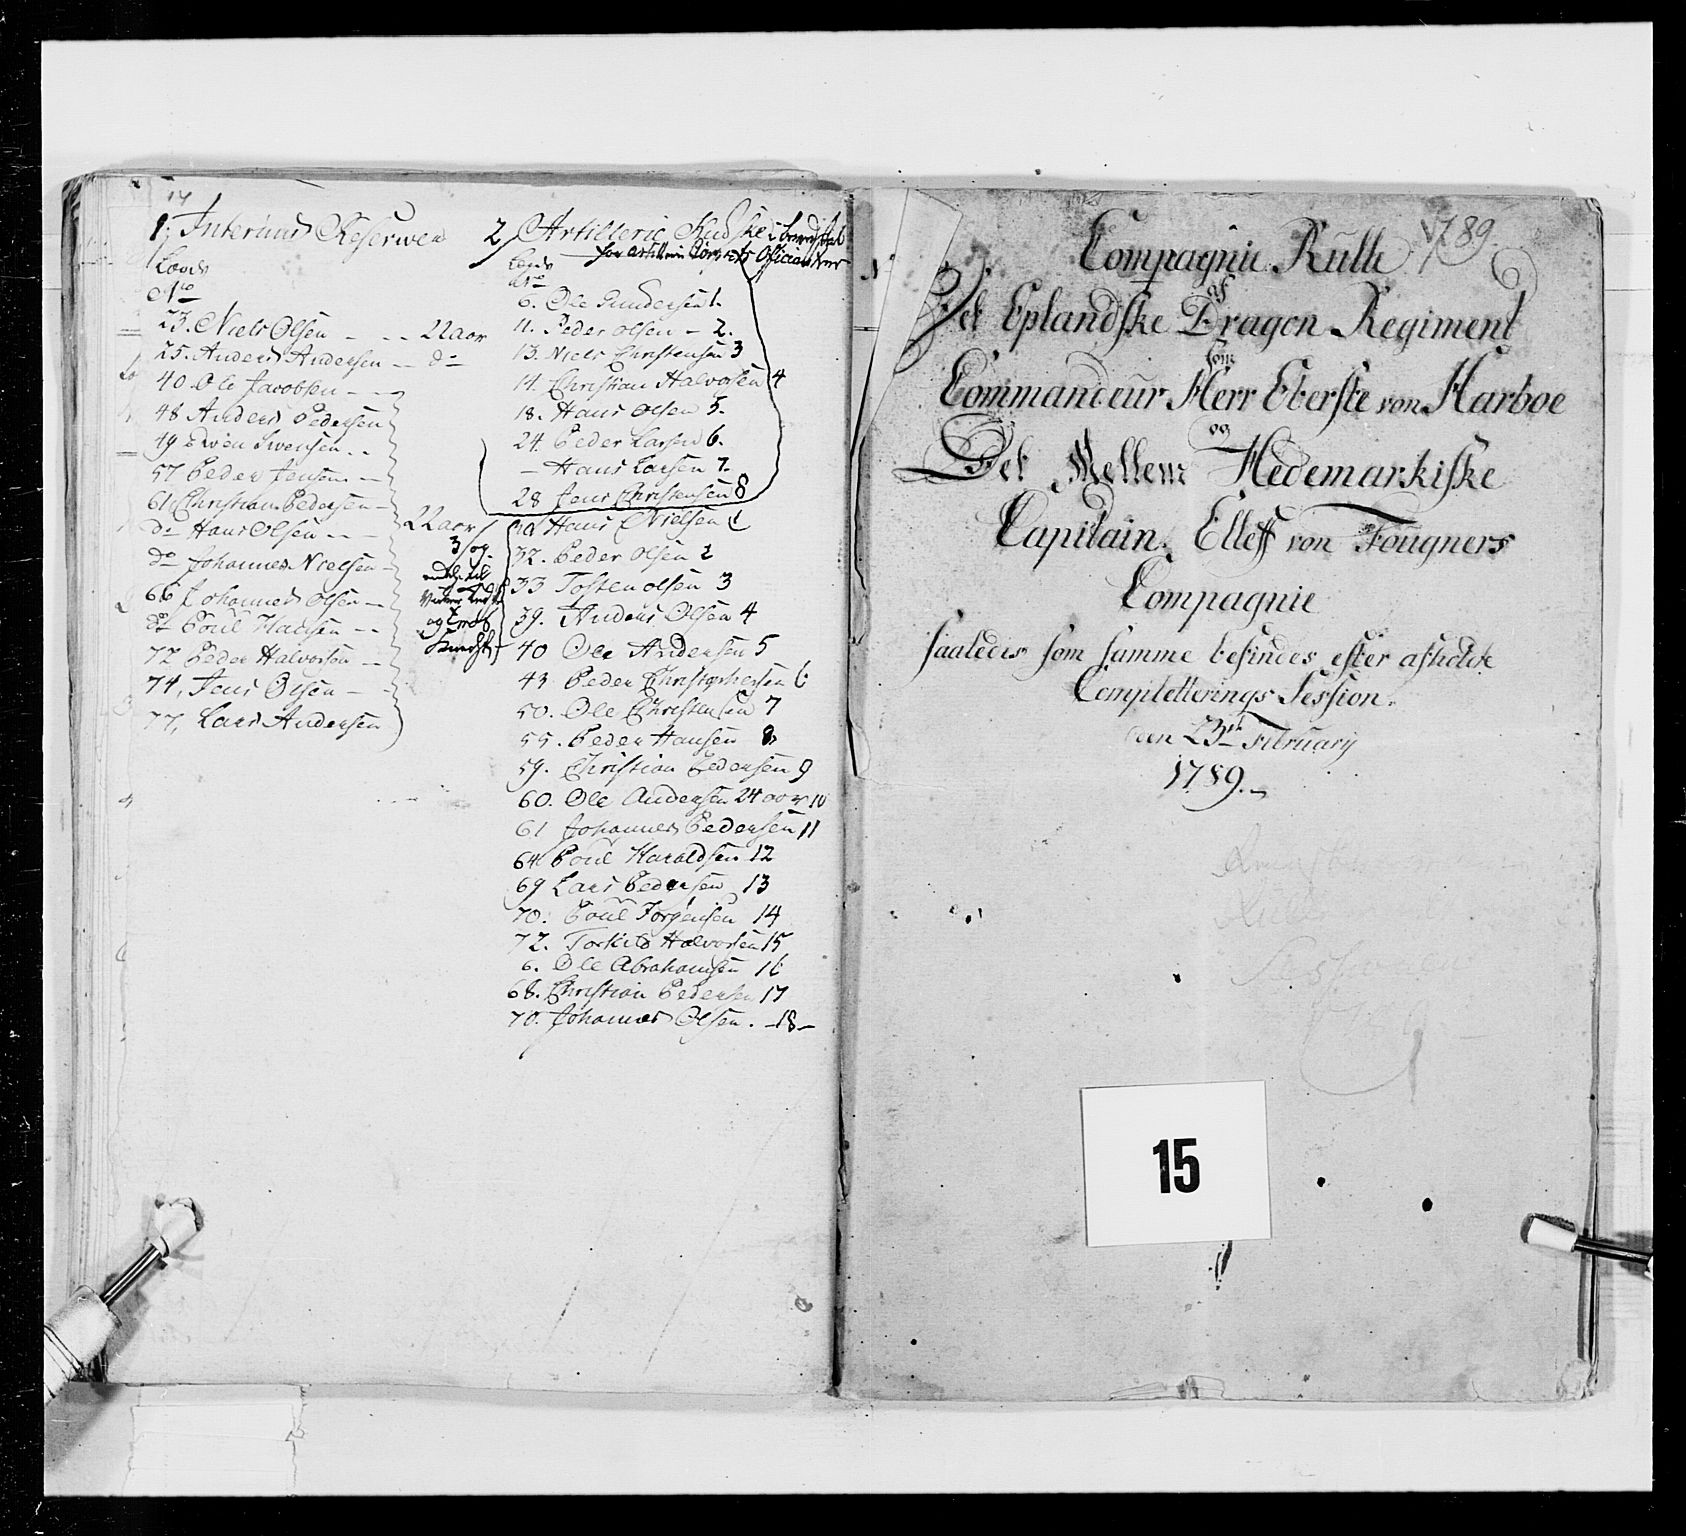 17
1. Interims Reserwen
Lands
No
23. Niels Olsen - - - 22 aar
25. Anders Andersen - - do
40. Ole Jacobsen - -
48 Anders Pedersen
49 Swen Swensen - -
57 Peder Jensen - -
61 Christian Pedersen -
do Hans Olsen - -
do Johannes Nielsen -
66 Johannes Olsen -
do Poul Hansen - -
72 Peder Halvorsen -
74, Jens Olsen - -
77, Lars Andersen
22 aar
3 og
og
Knegt
2, Artillerie Kudske
for Artillerie Corpsets Officianter
Lands
No
6. Ole Gundersen 1.
11. Peder Olsen - 2.
13. Niels Christensen 3
14. Christian Halvorsen 4
18. Hans Olsen 5.
24. Peder Larsen 6.
- Hans Larsen 7.
28 Jens Christensen 8
Hans Nielsen 1
32. Peder Olsen 2
33 Tosten Olsen 3
39. Anders Olsen 4
40 Ole Andersen 5
43 Peder Christophersen 6
50. Ole Christensen 7
55. Peder Hansen 8.
59. Christian Pedersen 9
60. Ole Andersen 24 aar 10
61 Johannes Pedersen 11
64 Poul Haraldsen 12
69 Lars Pedersen 13
70. Poul Jørgensen 14
72. Torkild Halvorsen 15
6. Ole Abrahamsen 16
68. Christian Pedersen 17
70. Johannes Olsen. -18-
1789.
Compagnie Rulle
af
Det Oplandske Dragon Regiment
som
Commandeur Herr Oberste von Harboe
og
Det Mellem Hedemarkiske
Capitain Elleff von Fougners
Compagnie
saaledes som samme befindes efter afholdte
Completterings Session.
den 23de February
1789.
15